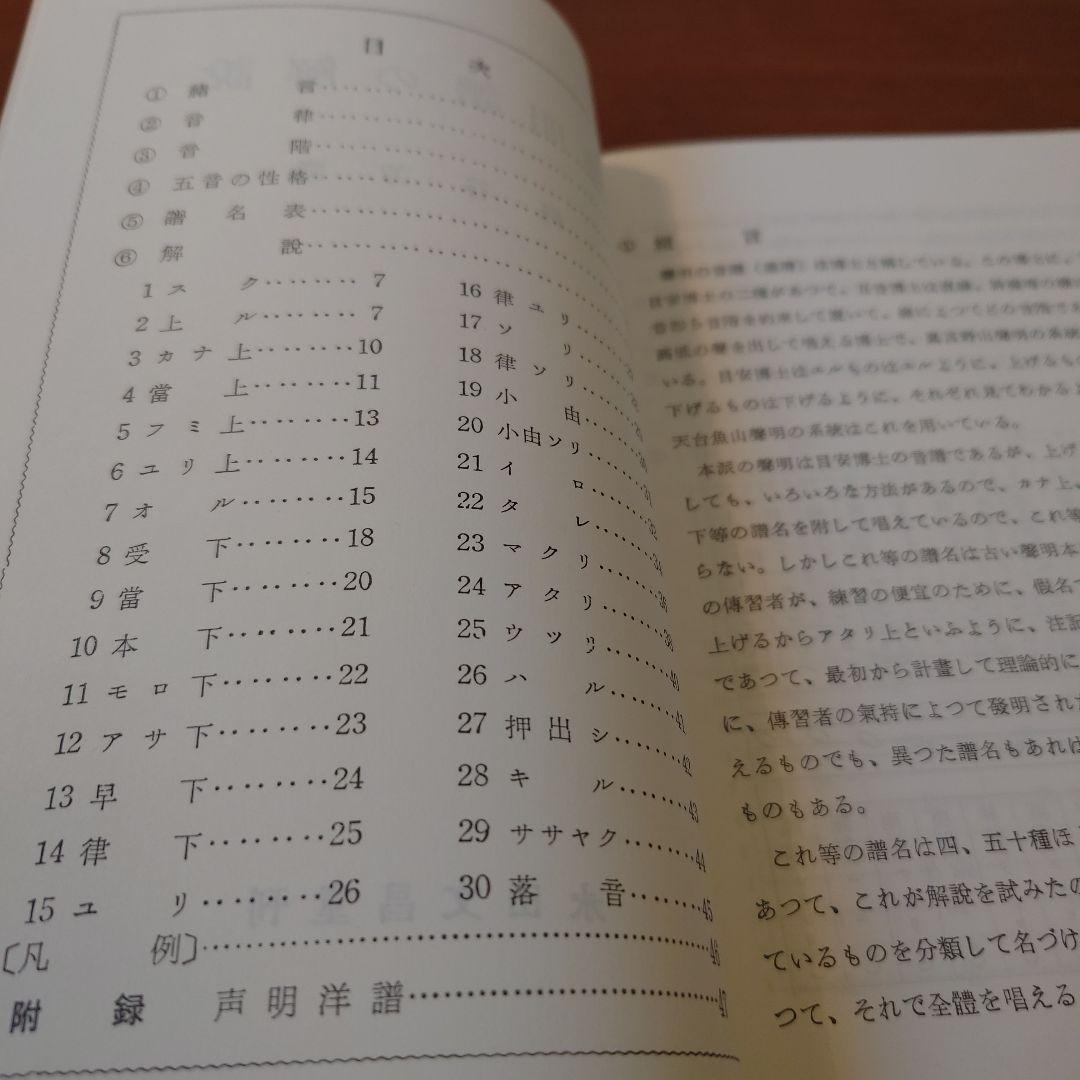 目次
① 緒言
② 音律
③ 音階
④ 五音の性格
⑤ 譜名表
⑥ 解説
1 スク 7
2 上ル 7
3 カナ上 10
4 當上 11
5 フミ上 13
6 ユリ上 14
7 オル 15
8 受下 18
9 當下 20
10 本下 21
11 モロ下 22
12 アサ下 23
13 早下 24
14 律下 25
15 ユリ 26
16 律ユリ
17 ソリ
18 律ソリ
19 小由
20 小由ソリ 31
21 イロ 32
22 タレ 34
23 マクリ 36
24 アタリ 38
25 ウツリ 40
26 ハル 41
27 押出シ 42
28 キル 43
29 ササヤク 44
30 落音 45
〔凡例〕 46
附録 声明洋譜 47
① 緒言
いる。目安博士はユルものはユルように、上げるもの
下げるものは下げるように、それぞれ見てわかるよ
天台魚山聲明の系統はこれを用いている。
本派の聲明は目安博士の音譜であるが、上げ
しても、いろいろな方法があるので、カナ上、
下等の譜名を附して唱えているので、これ等
らない。しかしこれ等の譜名は古い聲明本
の傳習者が、練習の便宜のために、假名で
上げるからアタリ上といふように、注記
であつて、最初から計畫して理論的に
に、傳習者の氣持によつて發明された
えるものでも、異つた譜名もあれば
ものもある。
これ等の譜名は四、五十種ほ
あつて、これが解説を試みたの
ているものを分類して名づけ
つて、それで全體を唱える